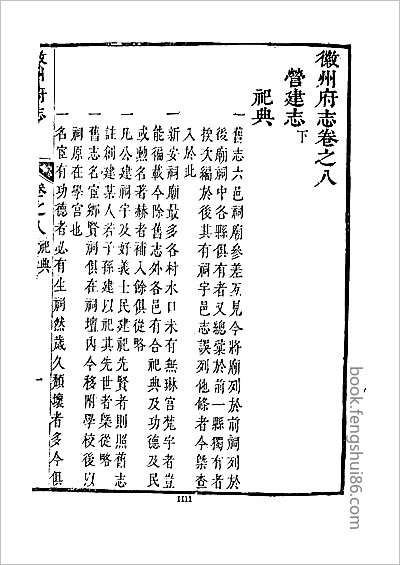 徽州府志卷之八
營建志下
祀典
一舊志六邑祠廟參差互見今將廟列於前祠列於
後廟祠中各縣俱有者又總彙於前一縣獨有者
挨次編於後其有祠宇邑志誤列他條者今槩查
入於此
一新安祠廟最多各村水口未有無琳宫梵宇者豈
能備載今除舊志外各邑有合祀典及功德及民
或勲名著赫者補入餘俱從略
一凡公建祠宇及好義士民建祀先賢者則照舊志
註創建某人若子孫建以祀其先世者槩從略
一舊志名宦鄉賢祠俱在祠壇内今移附學校後以
祠原在學宫也
一名宦有功德者必有生祠然歲久頹壞者多今俱
徽州府志
卷之八祀典
一
1111
book.fengshui86.com